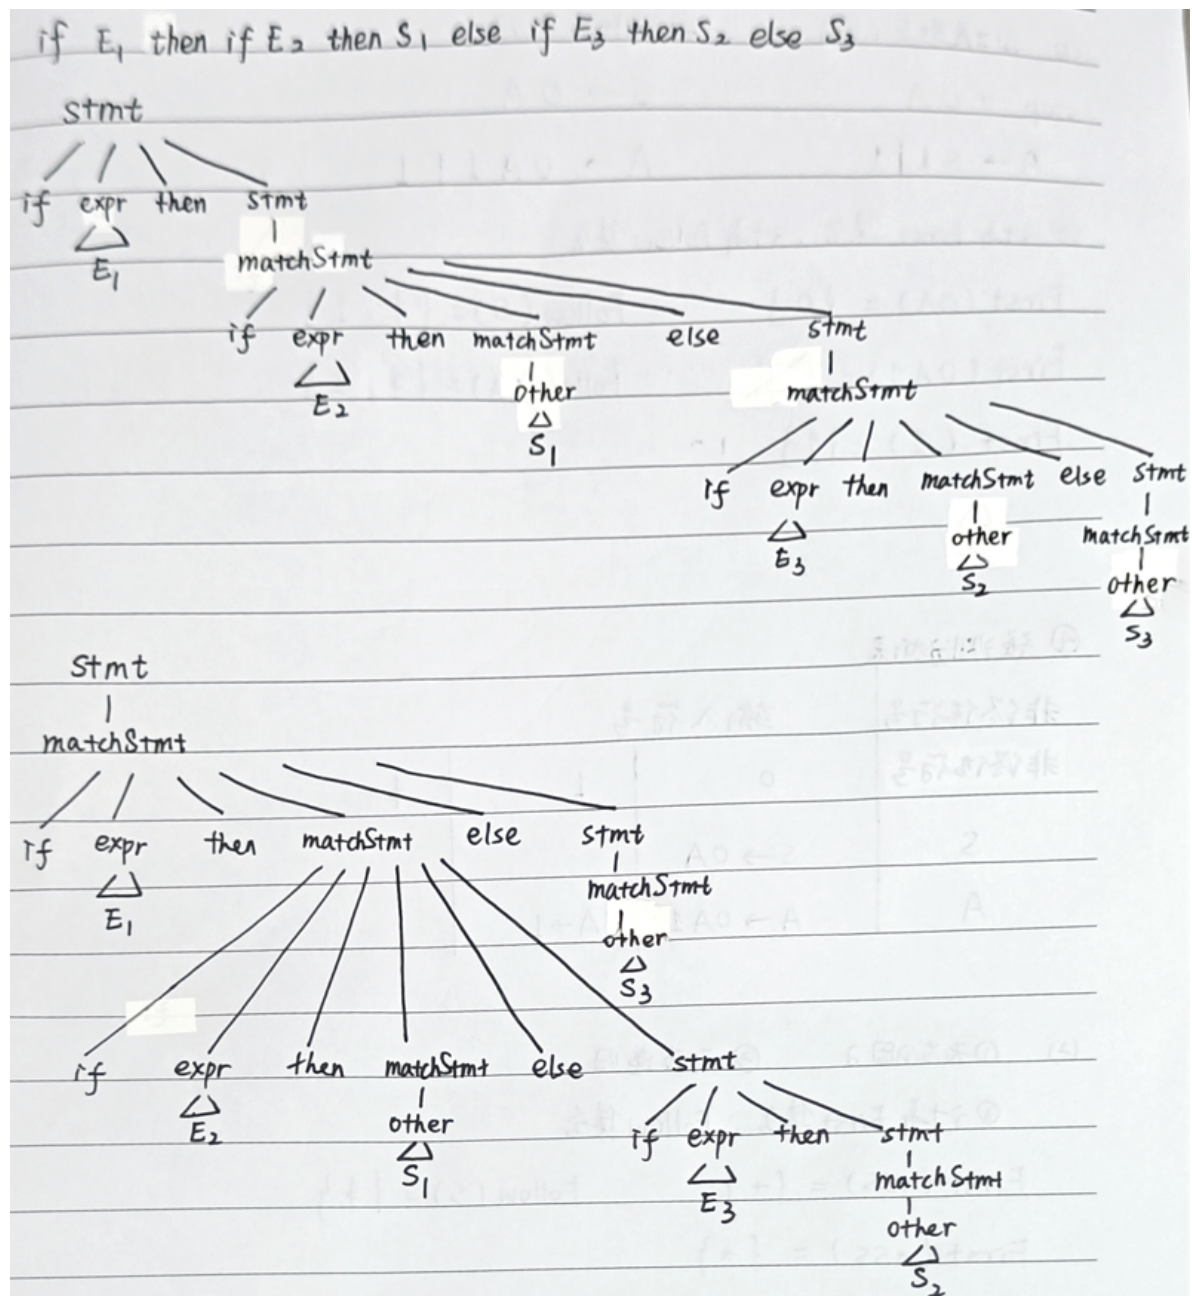 if E₁ then if E₂ then S₁ else if E₃ then S₂ else S₃
stmt
if expr then stmt
E₁
matchStmt
if expr then matchStmt else stmt
E₂
other
S₁
matchStmt
if expr then matchStmt else stmt
E₃
other
S₂
matchStmt
other
S₃
stmt
matchStmt
if expr then matchStmt else stmt
E₁
matchStmt
other
S₃
if expr then matchStmt else stmt
E₂
other
S₁
if expr then stmt
E₃
matchStmt
other
S₂